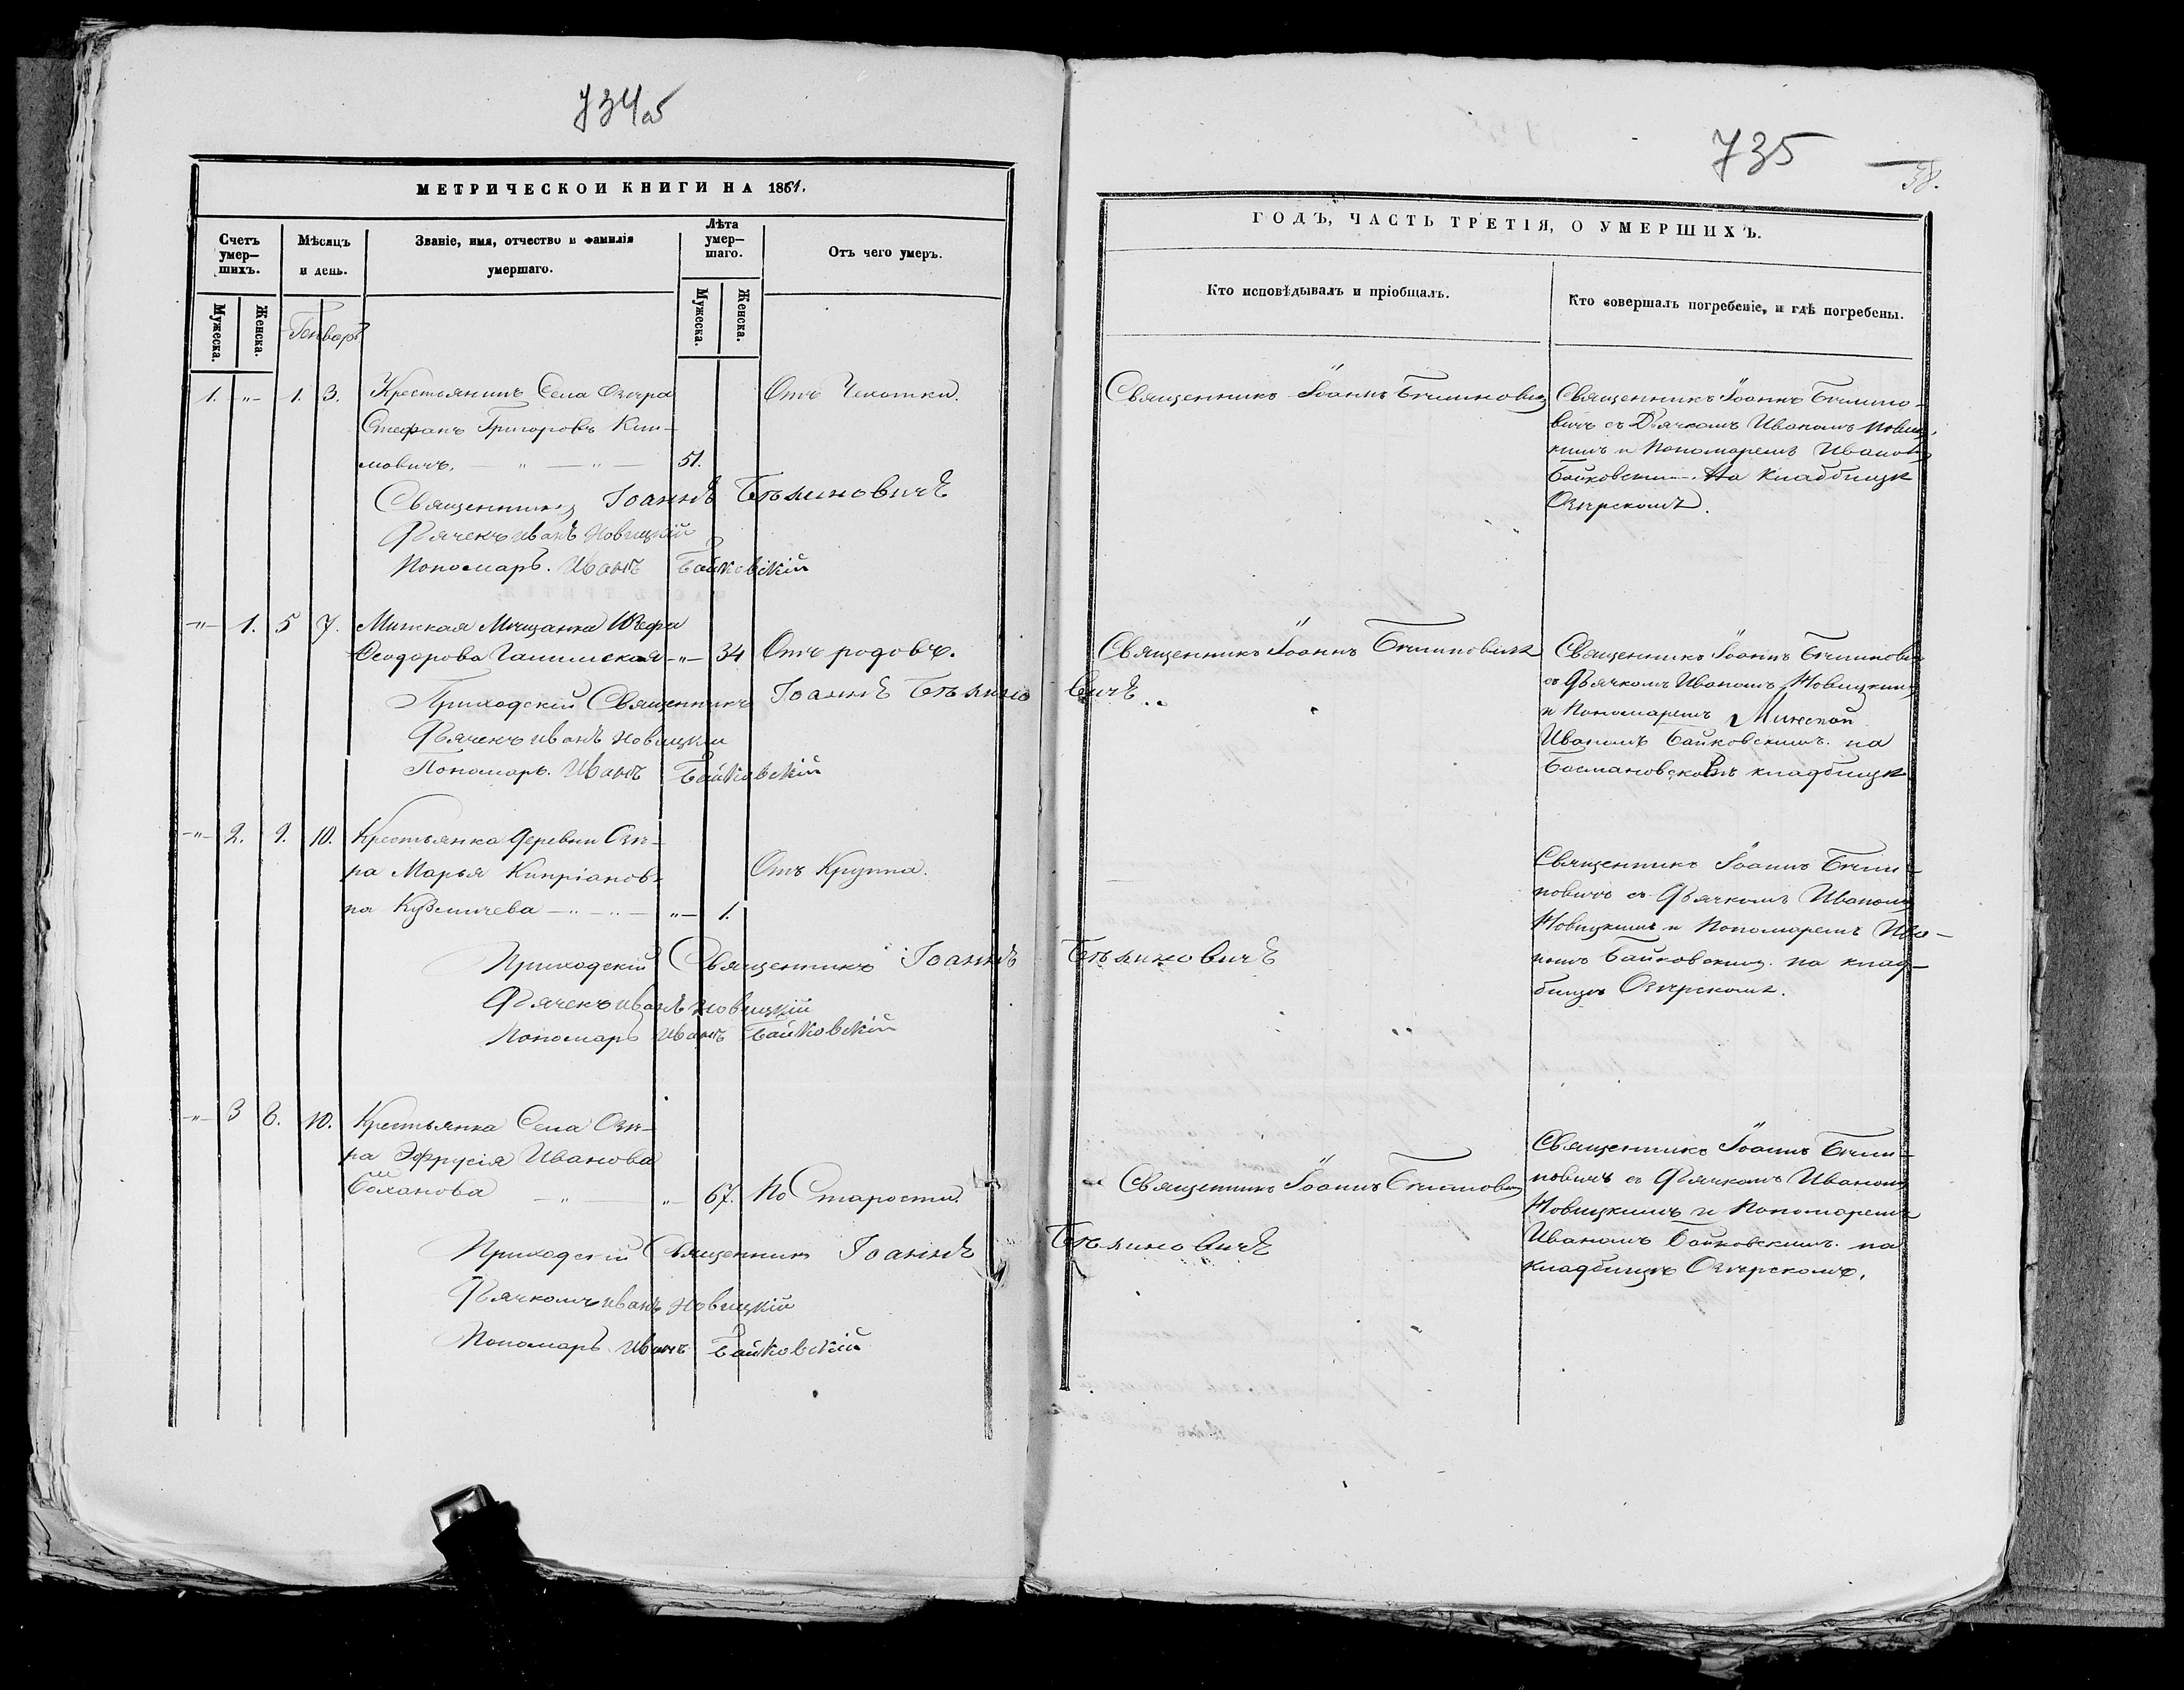 734об
МЕТРИЧЕСКОЙ КНИГИ НА 1861.
Счетъ умер—шихъ.
Мѣсяцъ и день.
Званіе, имя, отчество и фамилія умершаго.
Лѣта умер—шаго.
Отъ чего умеръ.
Мужеска.
Женска.
Генварь
Мужеска.
Женска.
1. -"- 1. 3. Крестьянинъ Села Озера
Отъ Чахотки.
Стефанъ Григоровъ Кли-
мовичъ. — " — " — 51.
Священникъ Іоаннъ Бѣлиновичъ
Дьячекъ Иванъ Новицкій
Пономарь. Иванъ Байковскій
-"- 1. 5 7. Минская Мѣщанка
Ѳеодорова -"- 34 Отъ родовъ.
Приходскій Священникъ Іоаннъ Бѣлино
Дьячекъ Иванъ Новицкій
Пономарь. Иванъ Байковскій
-"- 2. 9. 10. Крестьянка Деревни Озе-
ра Марья Кипріанов-
Отъ Круппа.
на Кузмичева — " — " — "- 1.
Приходскій Священникъ Іоаннъ
Дьячекъ Иванъ Новицкій
Пономарь Иванъ Байковскій
-"- 3 8. 10. Крестьянка Села Озе-
ра Эфрусія Иванова
Боханова — " — "- 67. По Старости.
Приходскій Священникъ Іоаннъ
Дьячкомъ Иванъ Новицкій
Пономарь Иванъ Байковскій
735
38.
ГОДЪ, ЧАСТЬ ТРЕТІЯ, О УМЕРШИХЪ.
Кто исповѣдывалъ и пріобщалъ.
Кто совершалъ погребеніе, и гдѣ погребены.
Священникъ Іоаннъ Бѣлиновичъ
Священникъ Іоаннъ Бѣлино-
вичъ съ Дьячкомъ Иваномъ Новиц-
кимъ и Пономаремъ Иваномъ
Байковскимъ. На Кладбищѣ
Озерскомъ.
Священникъ Іоаннъ Бѣлиновичъ
вичъ
Священникъ Іоаннъ Бѣлинович
съ Дьячкомъ Иваномъ Новицкимъ
и Пономаремъ Минской
Иваномъ Байковскимъ. на
кладбищѣ
Священникъ Іоаннъ Бѣли-
новичъ съ Дьячкомъ Иваномъ
Новицкимъ и Пономаремъ Ива-
номъ Байковскимъ. на клад-
бищѣ Озерскомъ.
Бѣлиновичъ
Священникъ Іоаннъ Бѣлиновичъ
Бѣлиновичъ
Священникъ Іоаннъ Бѣли-
новичъ съ Дьячкомъ Иваномъ
Новицкимъ и Пономаремъ
Иваномъ Байковскимъ. на
кладбищѣ Озерскомъ.